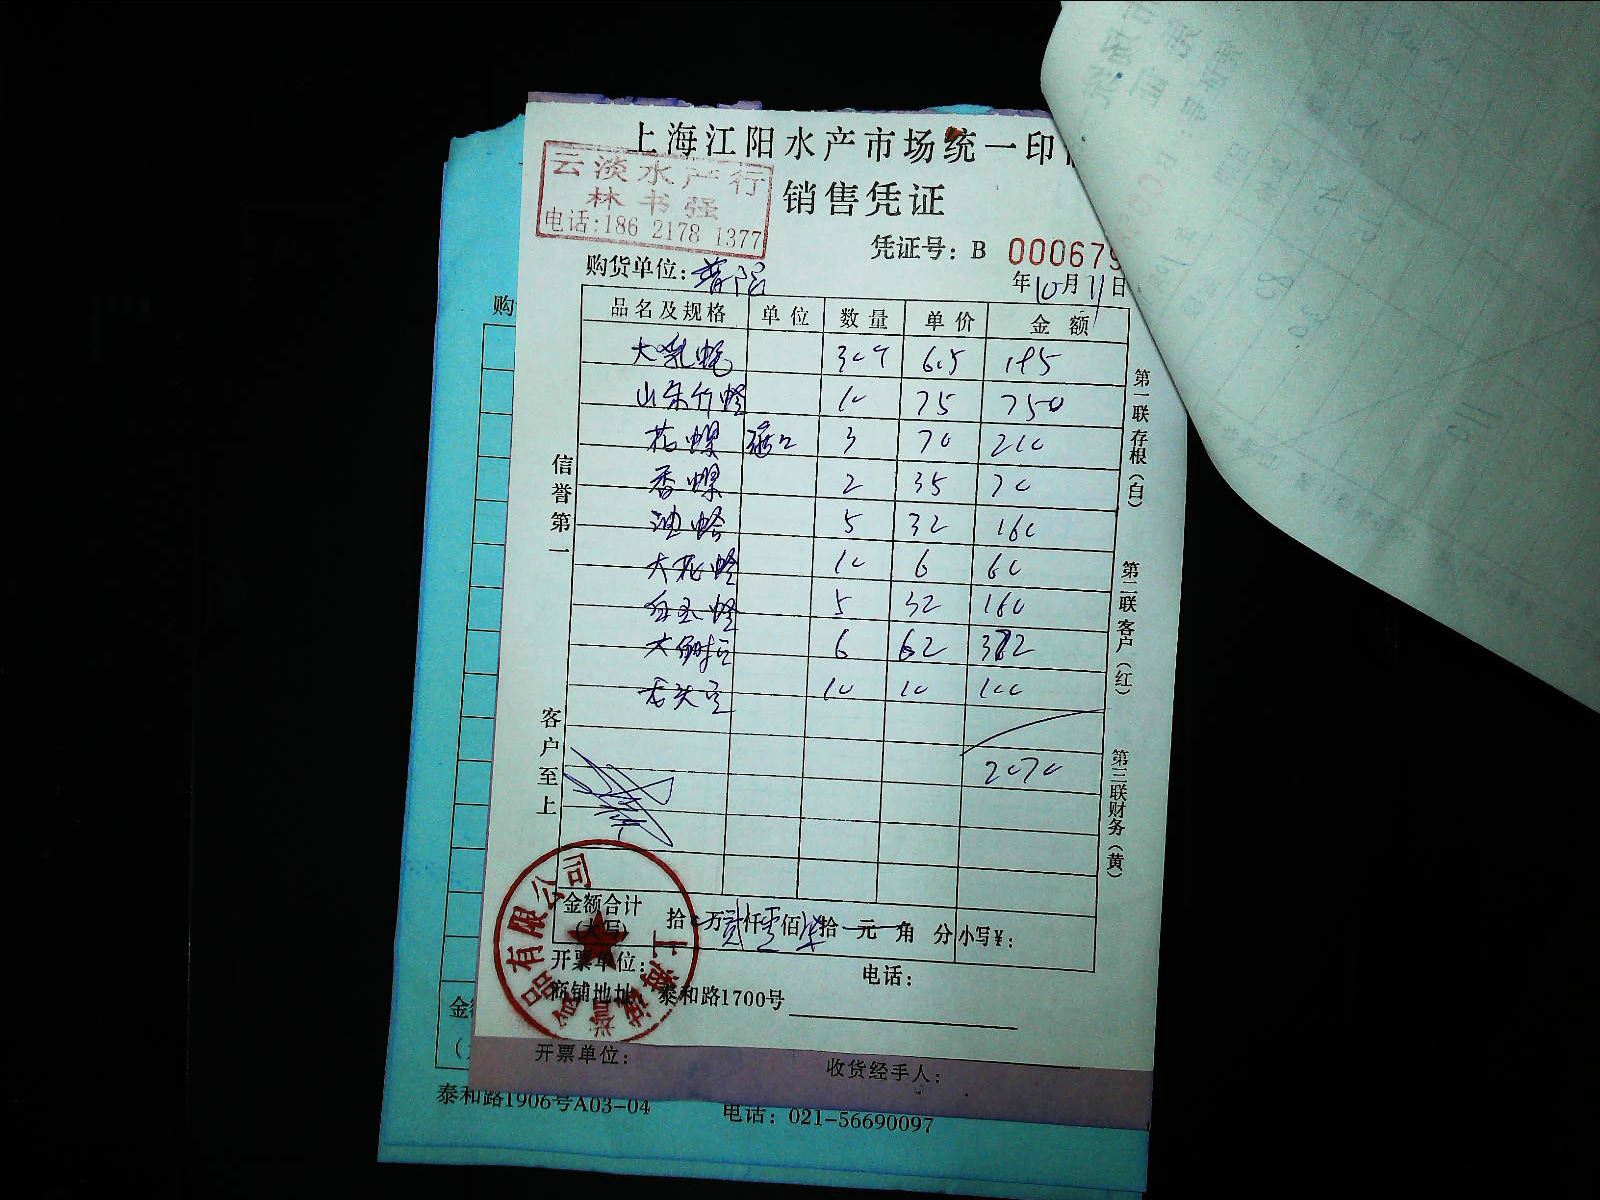 上海江阳水产市场统一印
云淡水产行
林书强
电话:186 2178 1377
销售凭证
凭证号: B 000679
购货单位:
年10月11日
品名及规格 单位 数量 单价 金额
大乳蚝 30个 6.5 195
山东竹蛏 10 75 750
花螺 3 70 210
香螺 2 35 70
油蛤 5 32 160
大花蛤 10 6 60
白玉蛏 5 32 160
大鲍 6 62 372
龙头 10 10 100
2070
信誉第一
客户至上
第一联存根(白)
第二联客户(红)
第三联财务(黄)
金额合计
(大写)
拾 万贰仟零佰柒拾 元 角 分 小写¥:
开票单位:
电话:
商铺地址: 泰和路1700号
品有限公司
上海
开票单位:
收货经手人:
购
金
泰和路1906号A03-04
电话: 021-56690097